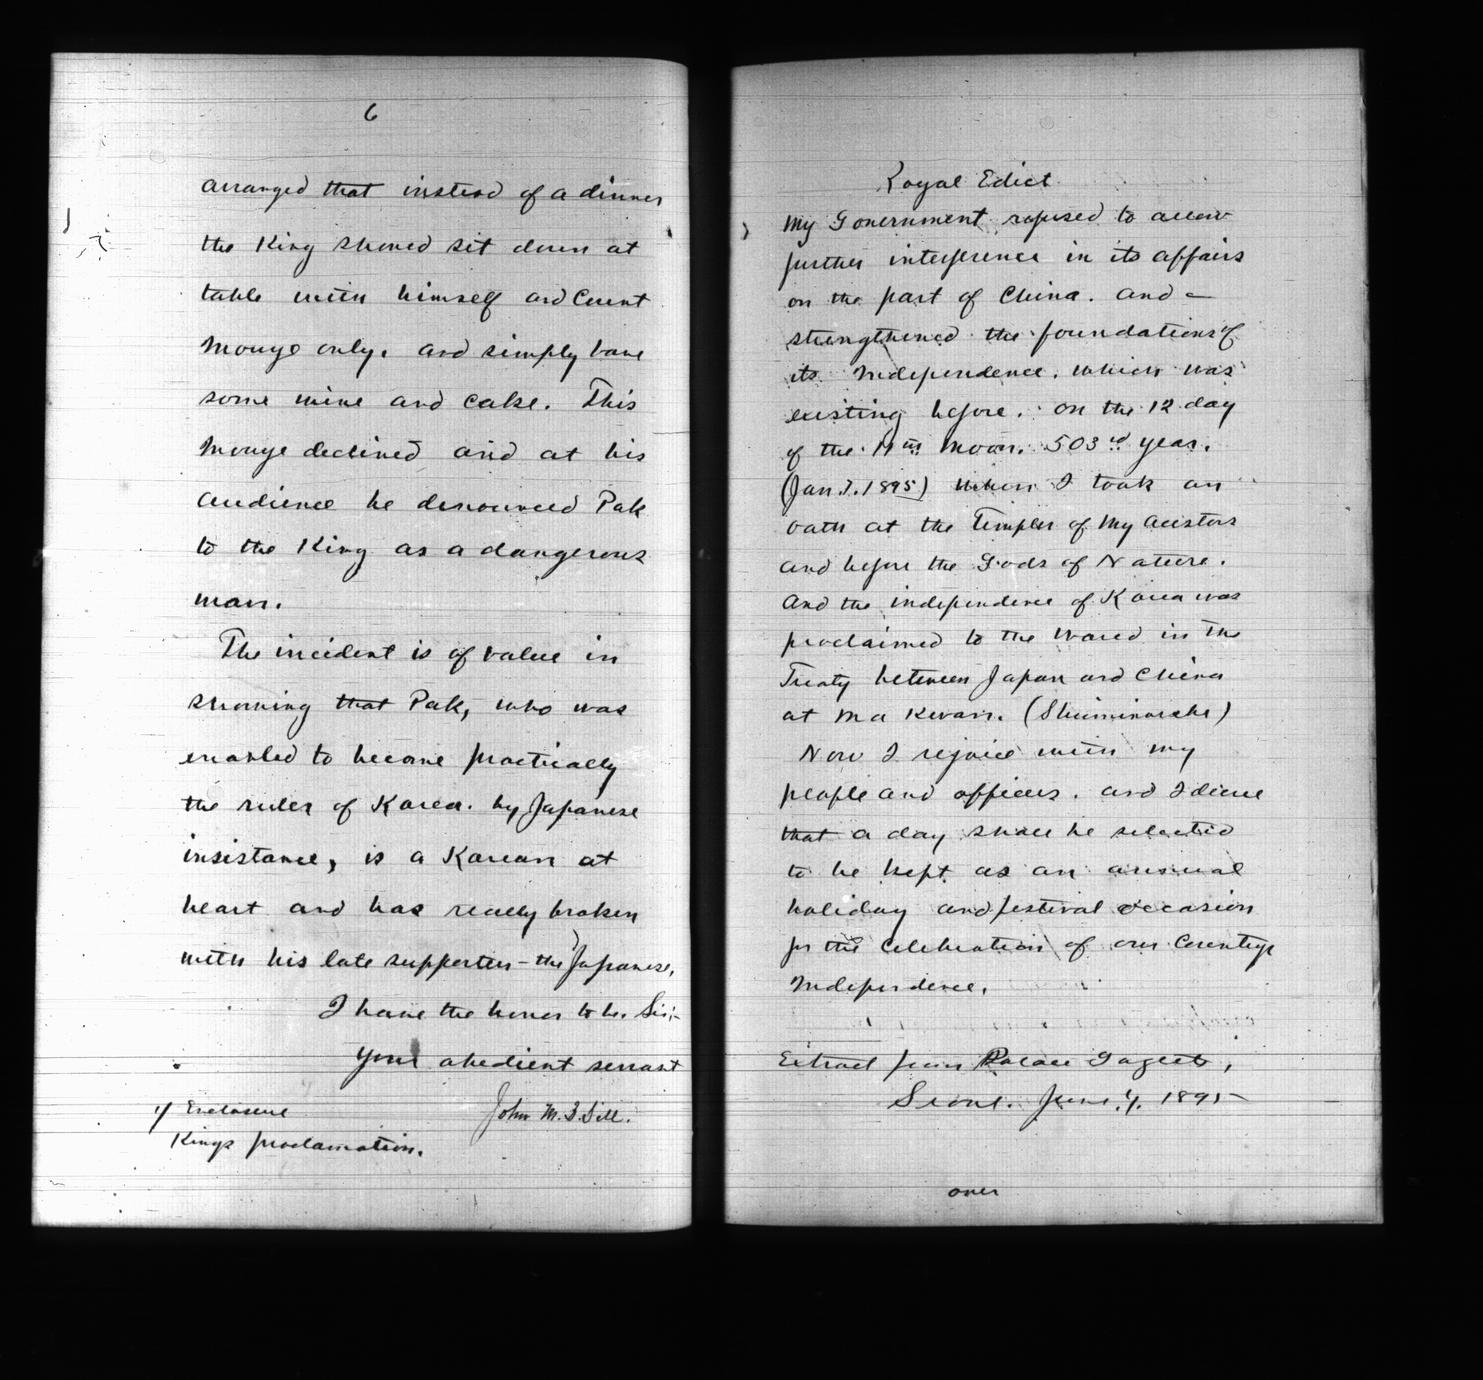 6
arranged that instead of a dinner
the King should sit down at
table with himself and Count
Mouye only, and simply have
some wine and cake. This
Mouye declined and at his
audience he denounced Pak
to the King as a dangerous
man.
The incident is of value in
showing that Pak, who was
enabled to become practically
the ruler of Korea, by Japanese
insistance, is a Korean at
heart and has really broken
with his late supporters - the Japanese.
I have the honor to be, Sir;-
Your obedient servant
John M. B. Sill.
1/ Enclosure
Kings proclamation.
Royal Edict
My Government refused to allow
further interference in its affairs
on the part of China. and
strengthened the foundations of
its Independence. which was
existing before. on the 12 day
of the 11th Moon. 503rd year.
(Jan. 7. 1895) When I took an
oath at the Temples of My Ancestors
and before the Gods of Nature.
And the independence of Korea was
proclaimed to the World in the
Treaty between Japan and China
at Ma Kwan. (Shiminoseki)
Now I rejoice with my
people and officers. and I decree
that a day shall be selected
to be kept as an annual
holiday and festival occasion
for the celebration of our Countrys
Independence.
Extract from Palace Gazette,
Seoul. June 4. 1895
over